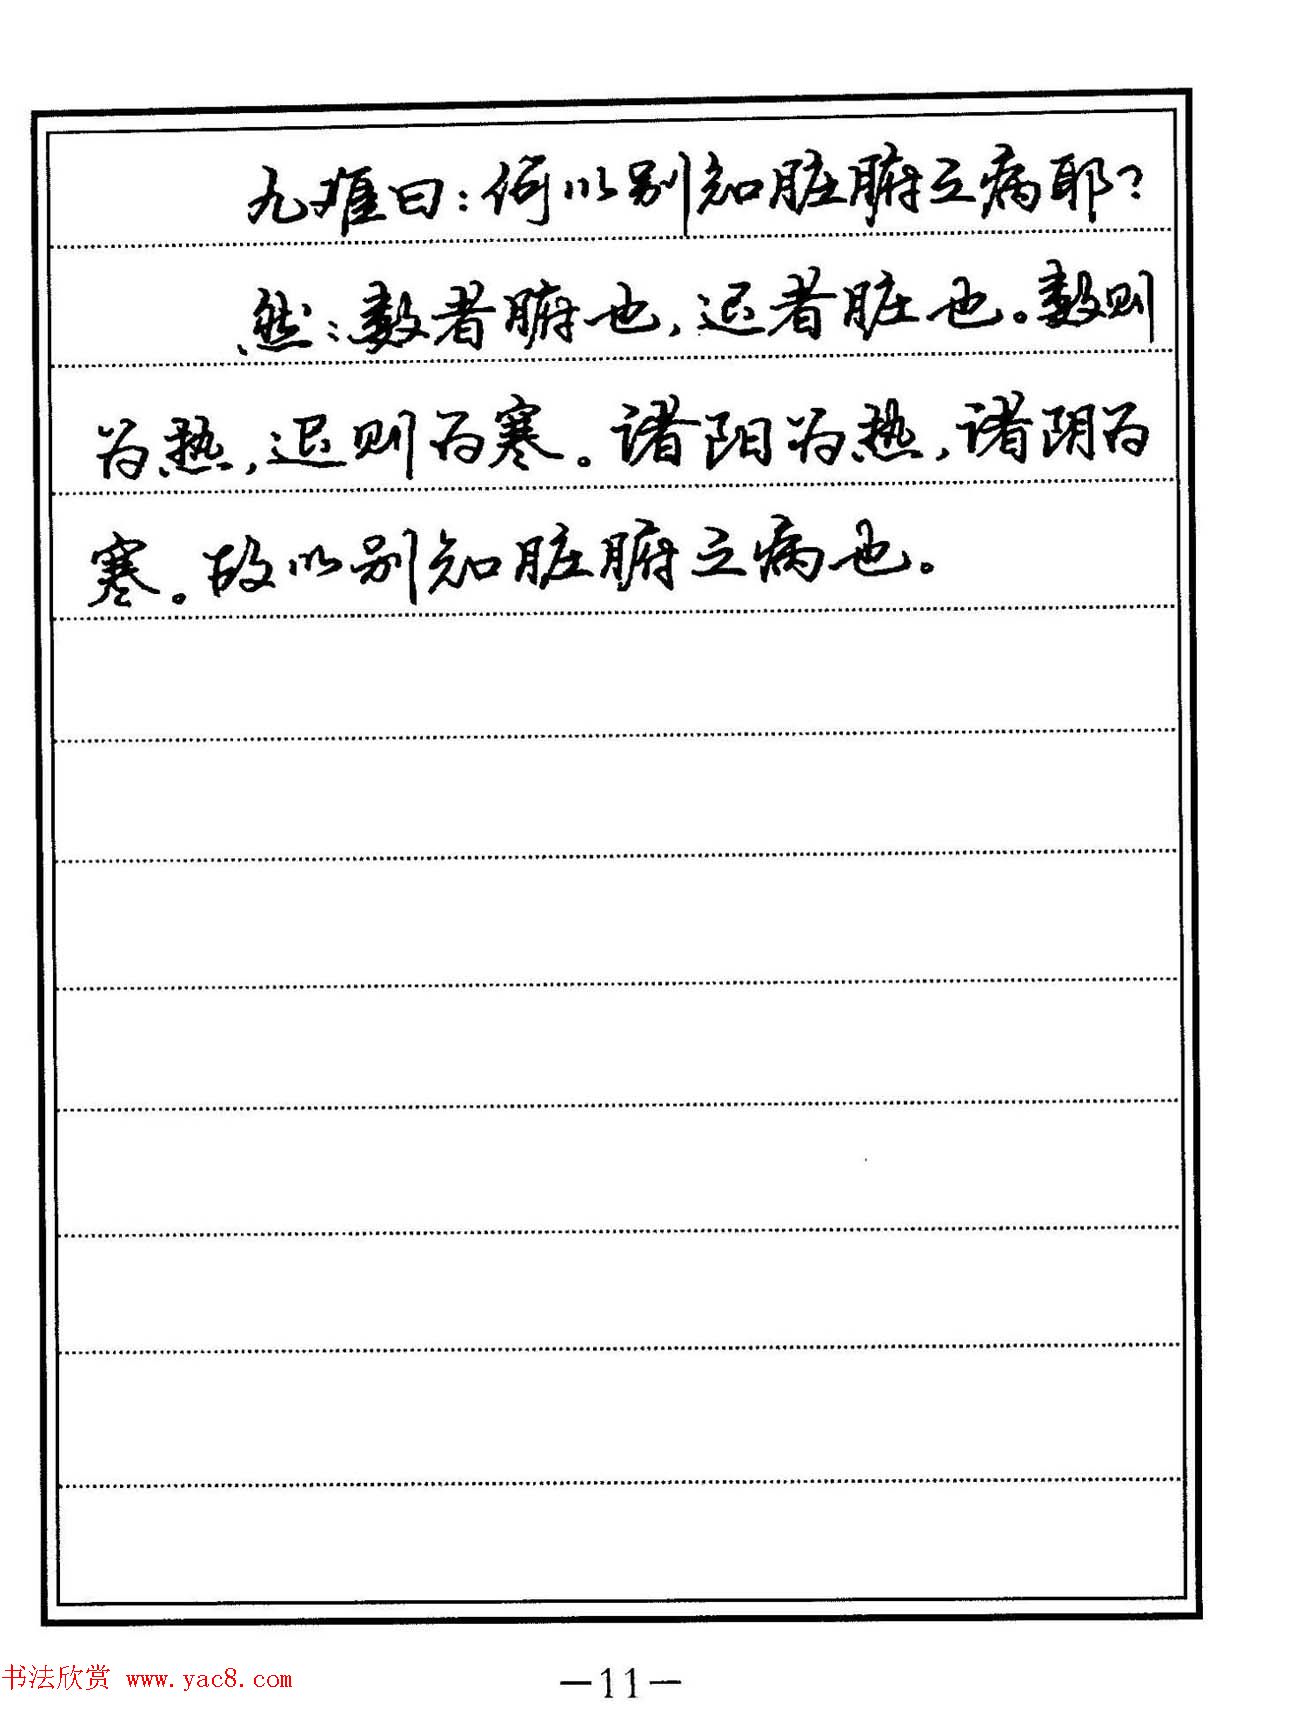 九难曰：何以别知脏腑之病耶？
然：数者腑也，迟者脏也。数则
为热，迟则为寒。诸阳为热，诸阴为
寒。故以别知脏腑之病也。
书法欣赏 www.yac8.com
—11—